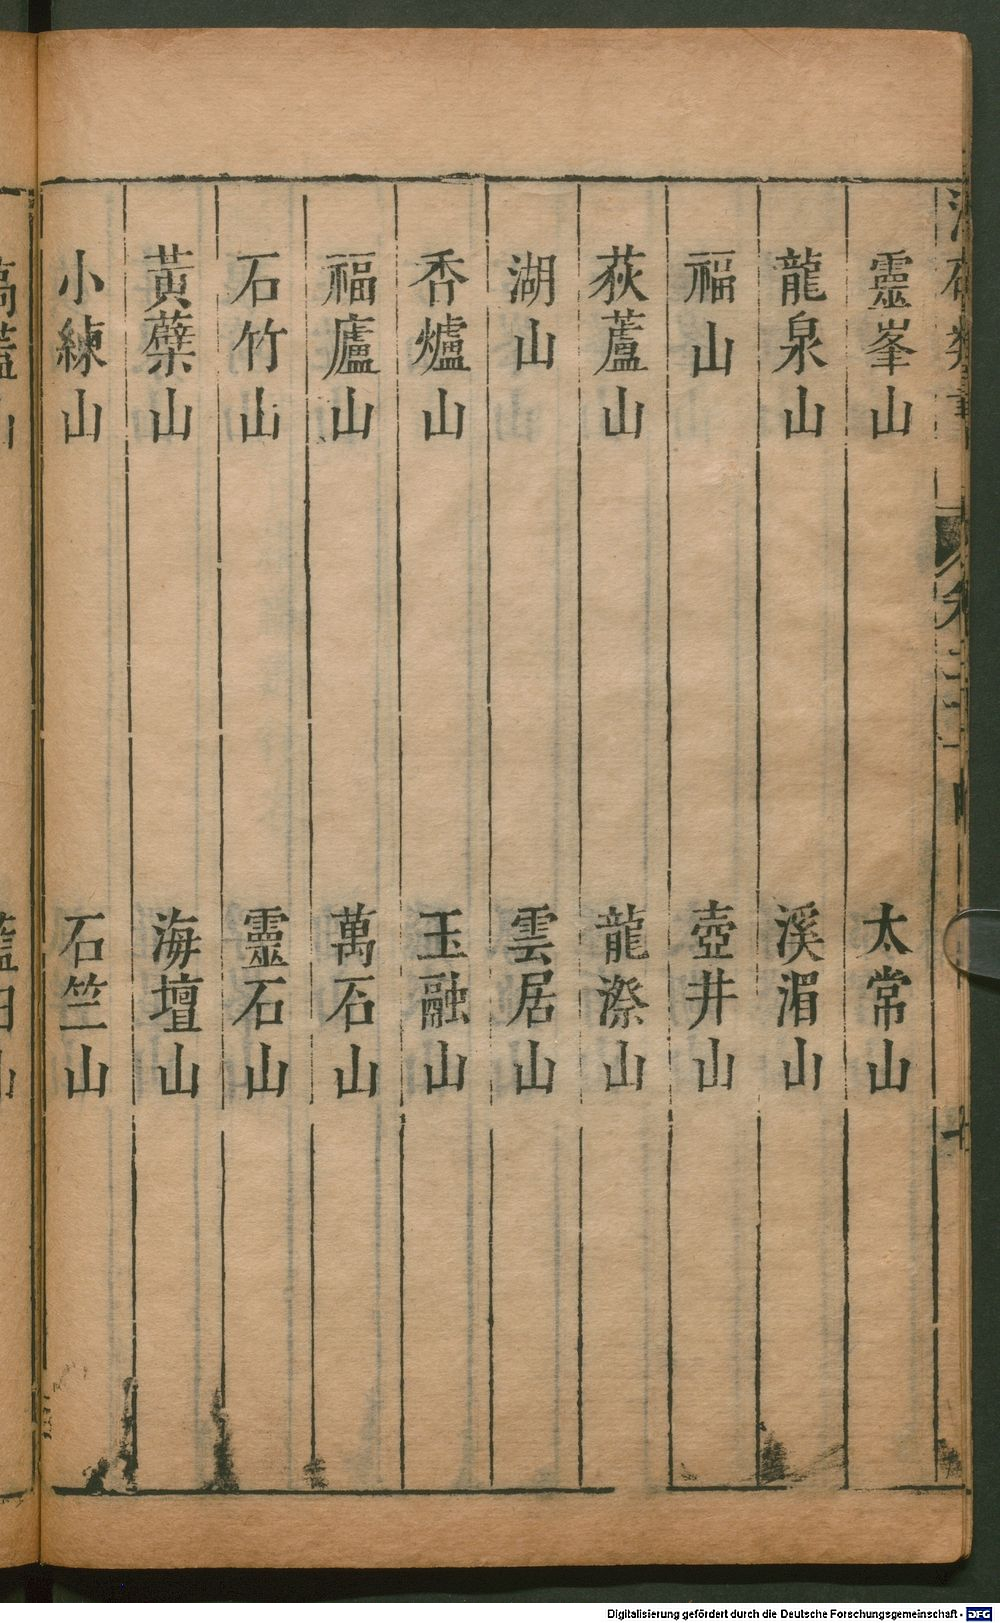 靈峯山 太常山
龍泉山 溪湄山
福山 壺井山
荻蘆山 龍漈山
湖山 雲居山
香爐山 玉融山
福廬山 萬石山
石竹山 靈石山
黃蘗山 海壇山
小練山 石竺山
Digitalisierung gefördert durch die Deutsche Forschungsgemeinschaft - DFG